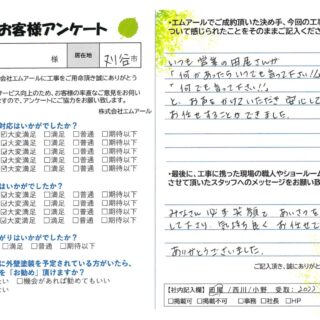 お客様アンケート
様 居住地 刈谷市
式会社エムアールに工事をご用命頂き誠にありがとう
ービス向上のため、お客様の率直なご意見をお伺い
ますので、アンケートにご協力をお願い致します。
株式会社エムアール
対応はいかがでしたか？
☑大変満足 □満足 □普通 □期待以下
☑大変満足 □満足 □普通 □期待以下
☑大変満足 □満足 □普通 □期待以下
☑大変満足 □満足 □普通 □期待以下
はいかがでしたか？
☑大変満足 □満足 □普通 □期待以下
☑大変満足 □満足 □普通 □期待以下
☑大変満足 □満足 □普通 □期待以下
がりはいかがでしたか？
□満足 □普通 □期待以下
に外壁塗装を予定されている方がいたら、
を「お勧め」頂けますか？
たい □機会があれば勧めてもいい
ない
・エムアールでご成約頂いた決め手、今回の工事
ついて感じられたことをそのままご記入くださ
いつも営業の田尾さんが
「何かあったらいつでも言って下さい!!」
「何でも言って下さい!!」
と、お声をかけていただき安心して
お任せすることができました。
・最後に、工事に携った現場の職人やショールーム
させて頂いたスタッフへのメッセージをお願い致
みなさん いつも笑顔で あいさつを
して下さり、気持ち良く お任せで
ありがとうございました。
ご記入頂き、誠にありが
【社内記入欄】田尾/西川/小野 受取：2022
□掲載可 □掲載不可 □事務 □社長 □HP